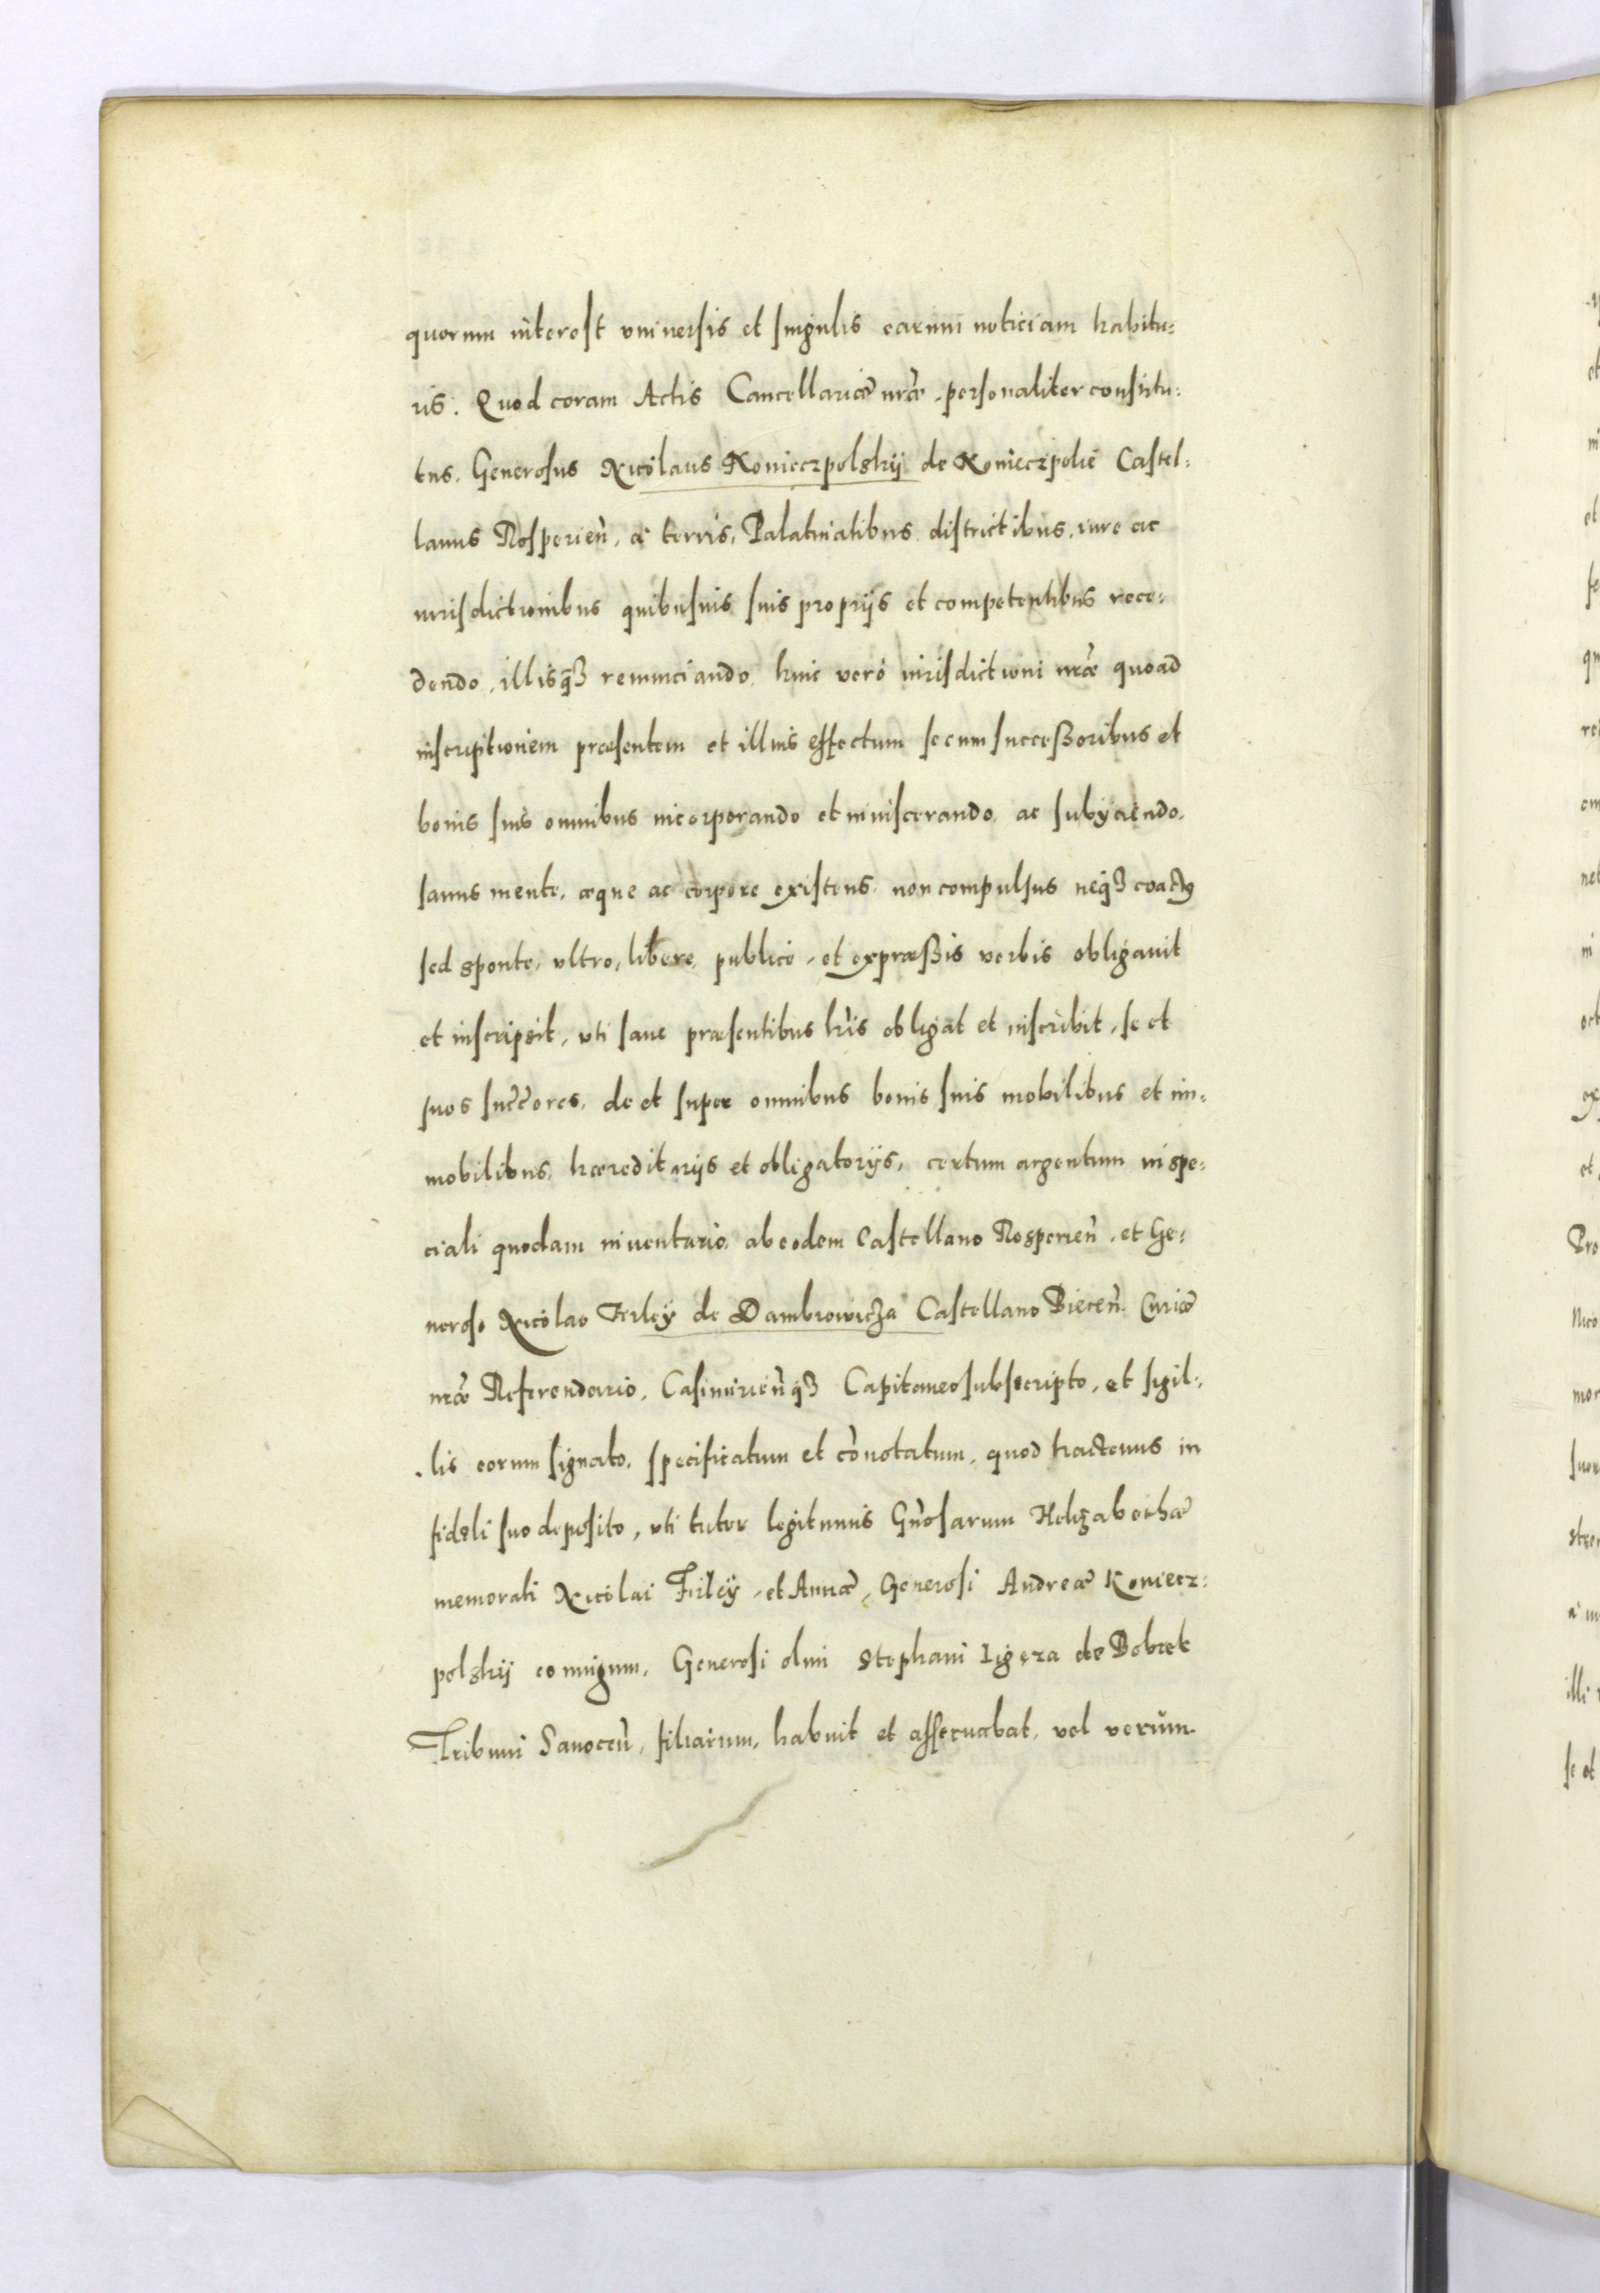 quorum interest vniuersis et singulis earum noticiam habitu:
ris. Quod coram Actis Cancellariæ nræ personaliter constitu:
tus. Generosus Nicolaus Konieczpolskij de Koniecżpolie Castel:
lanus Rosperien̄, a terris, Palatinatibus districtibus, iure ac
iurisdictionibus quibusuis suis proprijs et competentibus rece:
dendo, illisq3 renunciando, huic verò iurisdictioni nræ quoad
inscriptionem præsentem et illius effectum se cum successoribus et
bonis suis omnibus incorporando et inuiscerando, ac subyciendo,
sanus mente, æque ac corpore existens, non compulsus neq3 coactus
sed sponte, vltro, libere, publicè, et expræssis verbis obligauit
et inscripsit, vti sane præsentibus lr̄is obligat et inscribit, se et
suos succ̄ores, de et super omnibus bonis suis mobilibus et im:
mobilibus, hæreditarijs et obligatorijs, certum argentum in spe:
ciali quodam inuentario, ab eodem Castellano Rosperien̄, et Ge:
neroso Nicolao Firley de Dambrowicza Castellano Biecen̄. Curiæ
nrǣ Referendario, Casimirien̄q3 Capitaneo subscripto, et sigil:
lis eorum signato, specificatum et con̄otatum, quod hactenus in
fideli suo deposito, vti tutor legitimus Gn̄osarum Helizabethæ
memorati Nicolai Firleÿ, et Annæ, Generosi Andreæ Koniecz:
polskij coniugum, Generosi olim Stephani Ligęza de Bobrek
Tribuni Sanocen̄, filiarum, habuit et asseruabat, vel verùm